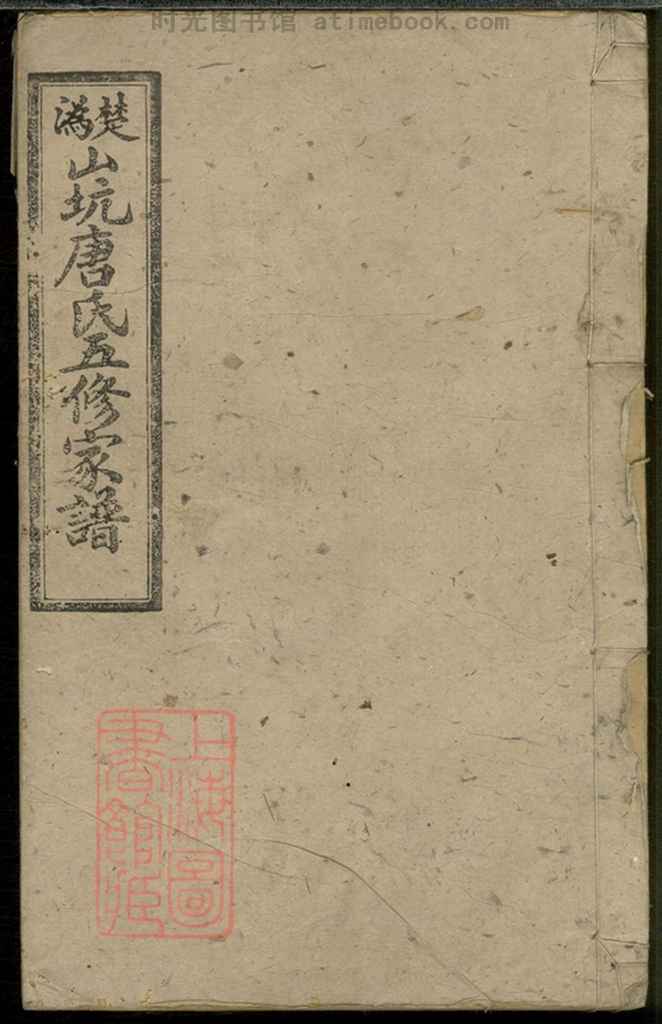 时光图书馆 atimebook.com
楚溈
山坑唐氏五修家譜
上海圖
書館藏